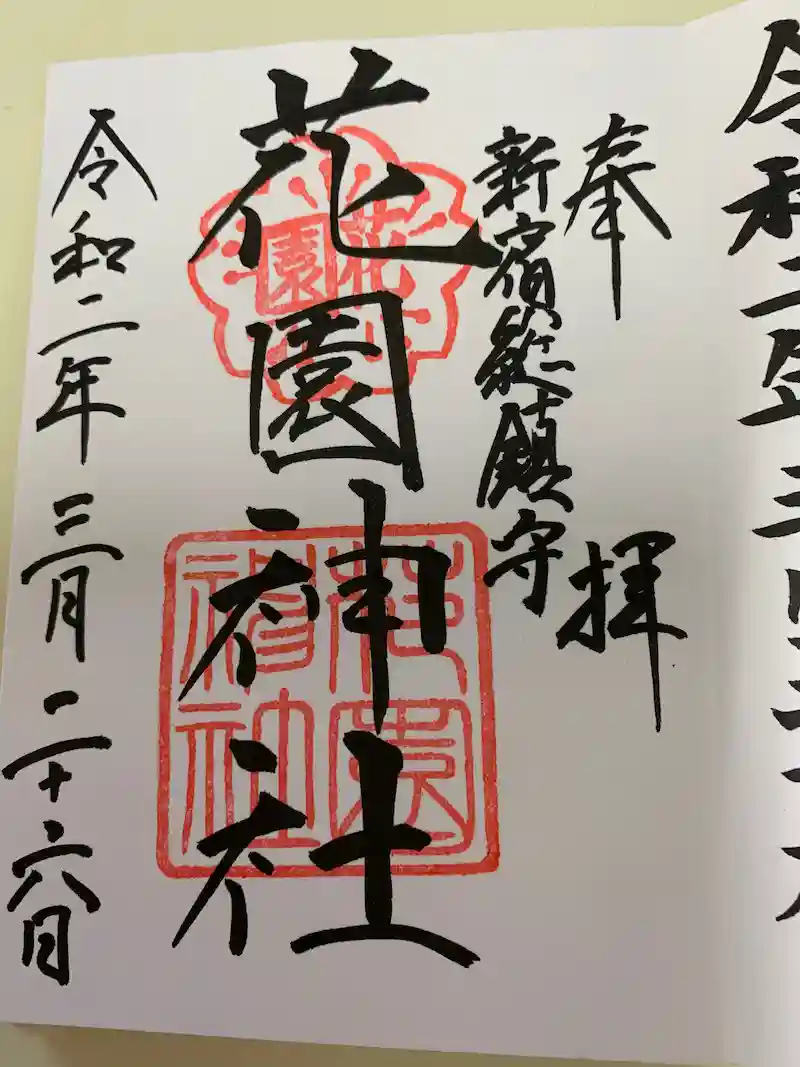 令和二年三月二十
奉拝
新宿総鎮守
花園神社
花園
花園神社
令和二年三月二十六日